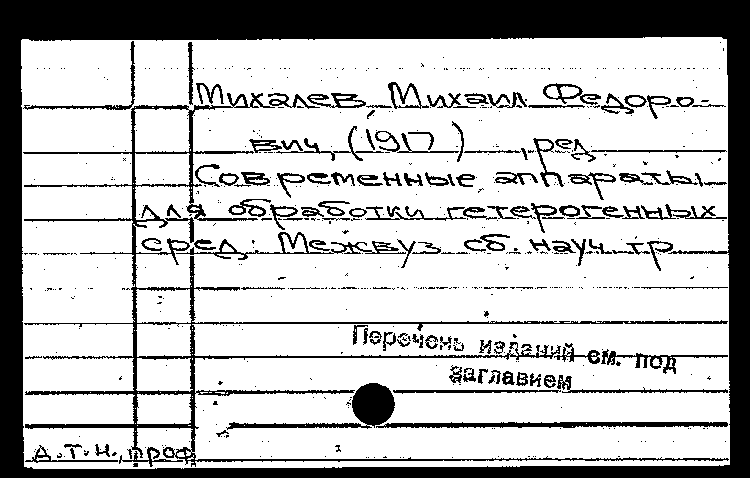 Михалев, Михаил Федоро-
вич, (1917 ) , ред.
Современные аппараты
для обработки гетерогенных
сред: Межвуз сб. науч. тр.
Перечень изданий см. под
заглавием
д.т.н., проф